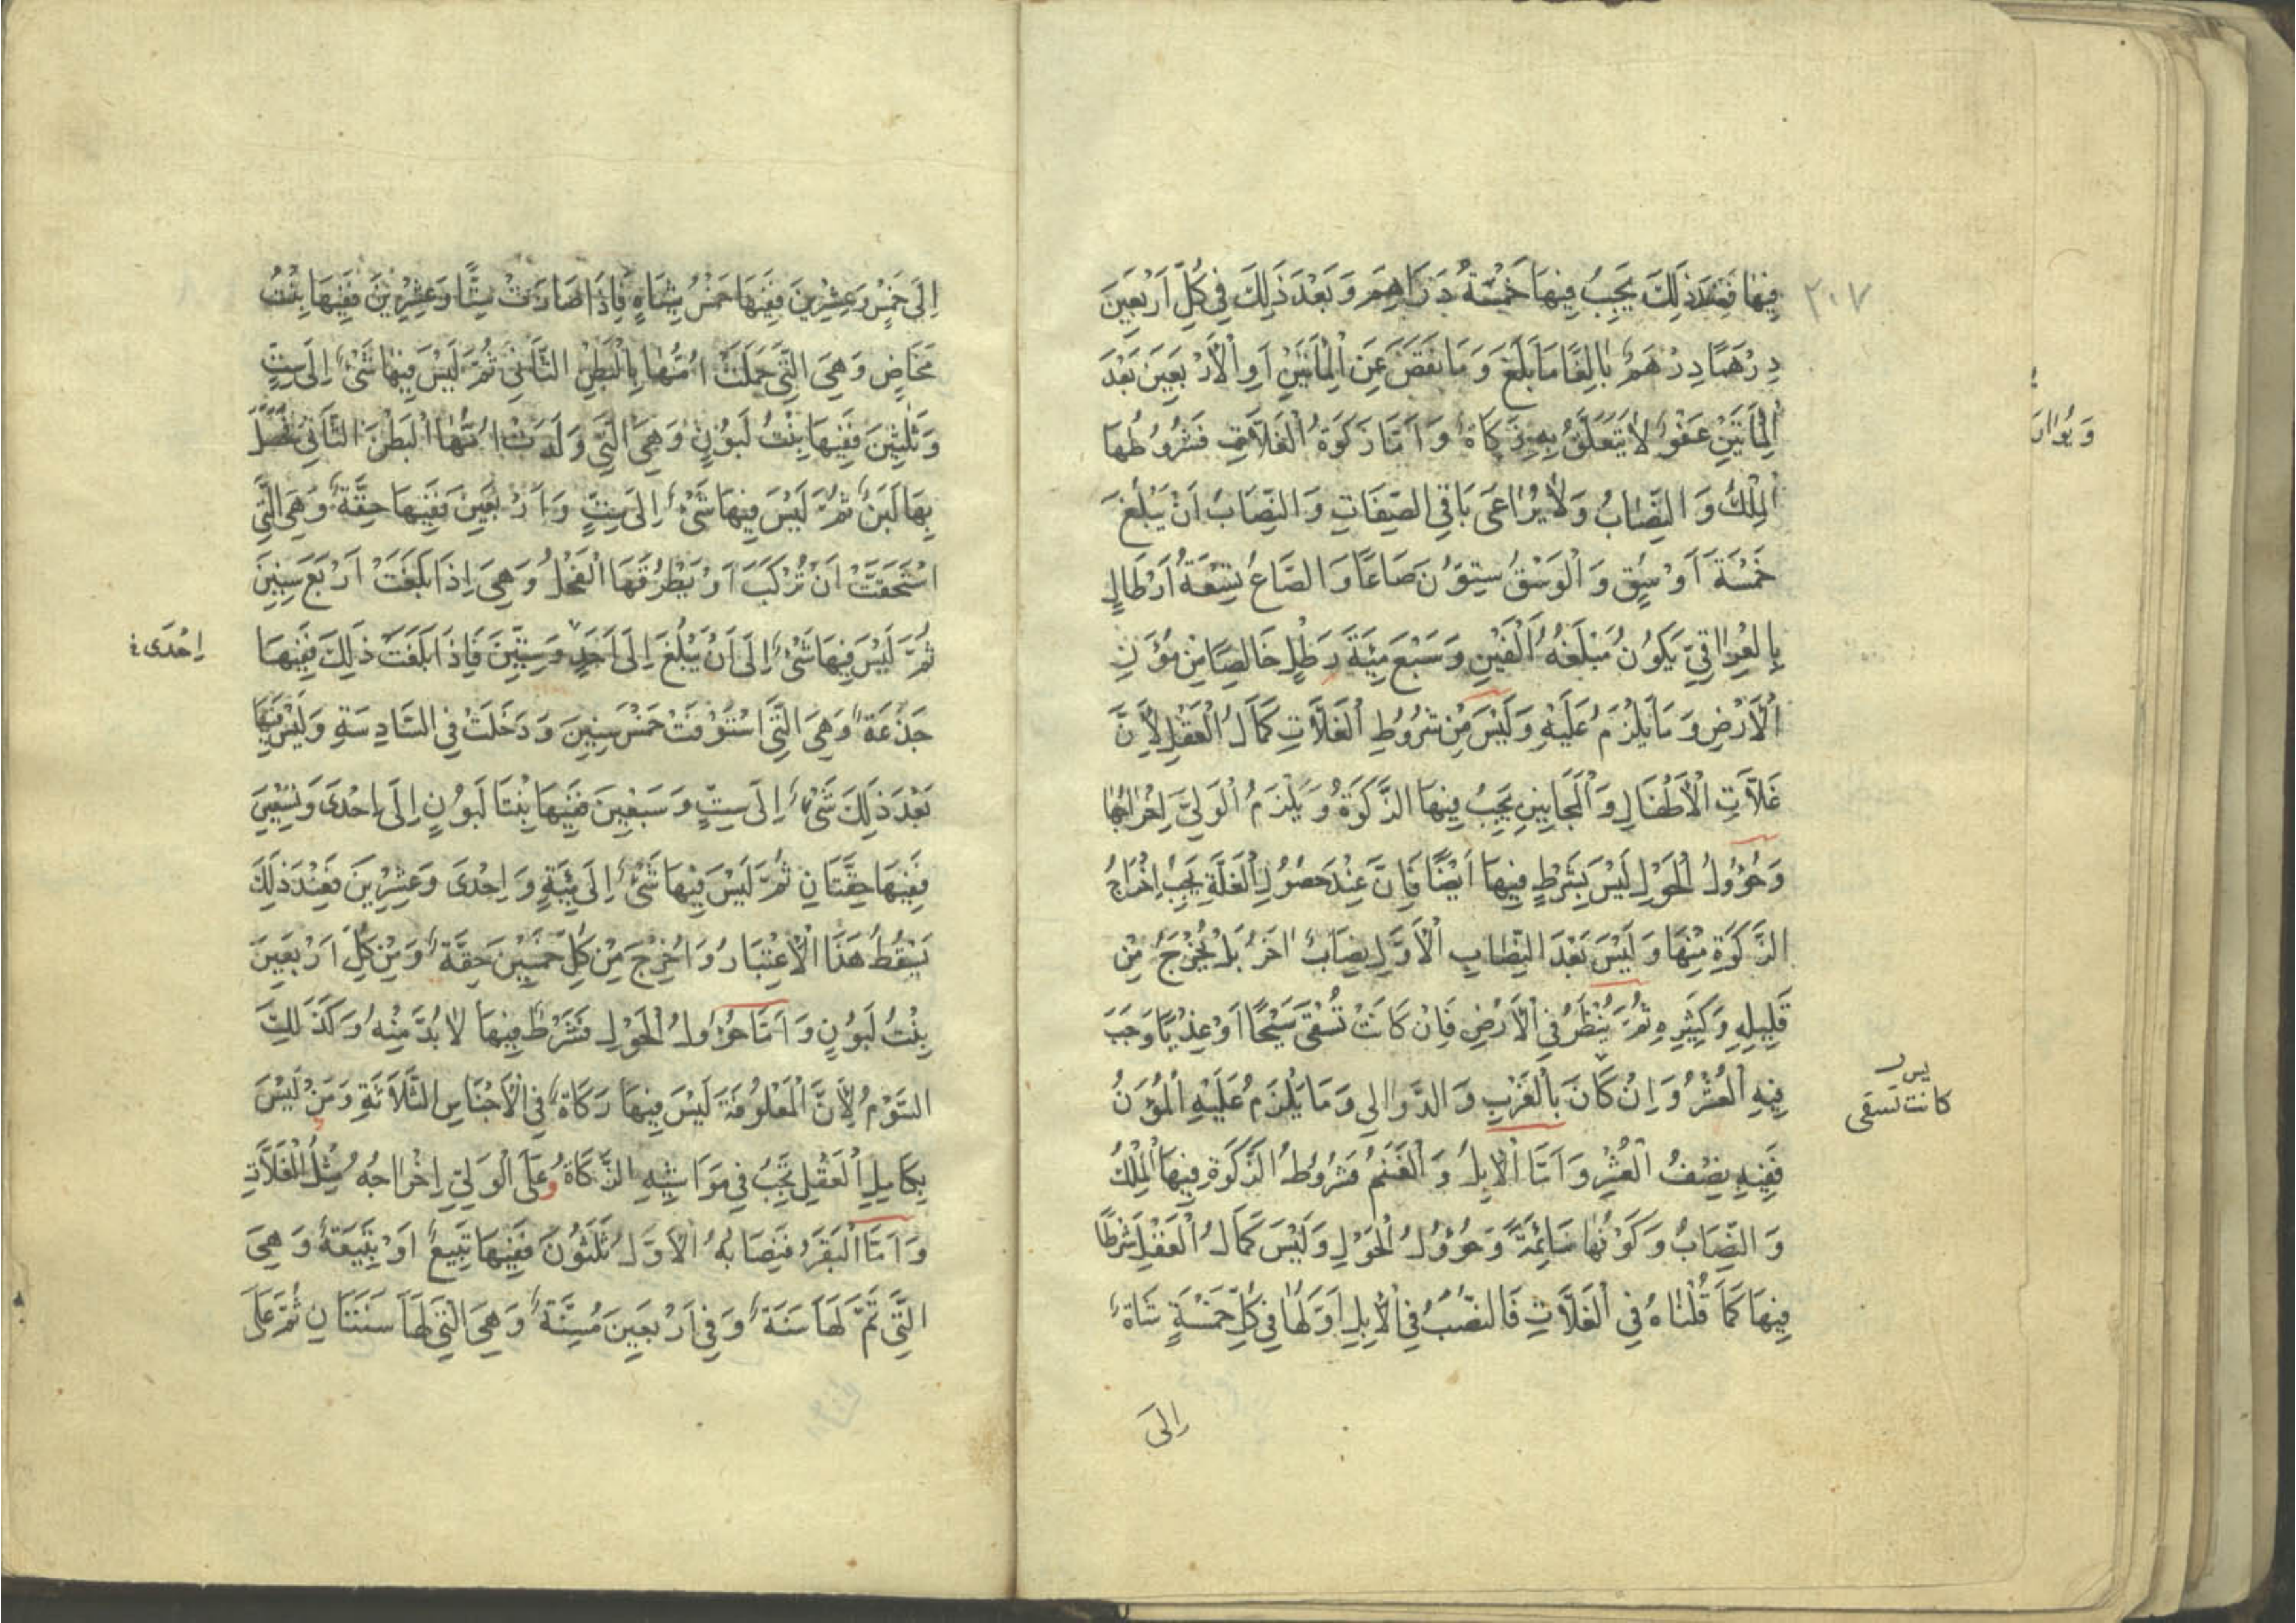 ٢٠٧
فِيهَا فَعِنْدَ ذَلِكَ يَجِبُ فِيهَا خَمْسَةُ دَرَاهِمَ وَبَعْدَ ذَلِكَ فِي كُلِّ أَرْبَعِينَ
دِرْهَمًا دِرْهَمٌ بَالِغًا مَا بَلَغَ وَمَا نَقَصَ عَنِ الْمِأَتَيْنِ أَوِ الْأَرْبَعِينَ بَعْدَ
الْمِأَتَيْنِ عَفْوٌ لَا يَتَعَلَّقُ بِهِ زَكَاةٌ وَأَمَّا زَكَوةُ الْغَلَّاتِ فَشُرُوطُهَا
الْمِلْكُ وَالنِّصَابُ وَلَا يُرَاعَى بَاقِي الصِّفَاتِ وَالنِّصَابُ أَنْ يَبْلُغَ
خَمْسَةَ أَوْسُقٍ وَالْوَسْقُ سِتُّونَ صَاعًا وَالصَّاعُ تِسْعَةُ أَرْطَالٍ
بِالْعِرَاقِيِّ يَكُونُ مَبْلَغُهُ أَلْفَيْنِ وَسَبْعَ مِئَةَ رِطْلٍ خَالِصًا مِنْ مُؤَنِ
الْأَرْضِ وَمَا يَلْزَمُ عَلَيْهِ وَلَيْسَ مِنْ شُرُوطِ الْغَلَّاتِ كَمَالُ الْعَقْلِ لِأَنَّ
غَلَّاتِ الْأَطْفَالِ وَالْمَجَانِينِ يَجِبُ فِيهَا الزَّكَوةُ وَيَلْزَمُ الْوَلِيَّ إِخْرَاجُهَا
وَحُؤُولُ الْحَوْلِ لَيْسَ بِشَرْطٍ فِيهَا أَيْضًا فَإِنَّ عِنْدَ حُصُولِ الْغَلَّةِ يَجِبُ إِخْرَاجُ
الزَّكَوةِ مِنْهَا وَلَيْسَ بَعْدَ النِّصَابِ الْأَوَّلِ نِصَابٌ اخَرُ بَلْ يُخْرَجُ مِنْ
قَلِيلِهِ وَكَثِيرِهِ ثُمَّ يُنْظَرُ فِي الْأَرْضِ فَإِنْ كَانَتْ تُسْقَى سَيْحًا أَوْ عِذْيًا وَجَبَ
فِيهِ الْعُشْرُ وَإِنْ كَانَ بِالْغَرْبِ وَالدَّوَالِي وَمَا يَلْزَمُ عَلَيْهِ الْمُؤَنُ
كانت تسقى
فَفِيهِ نِصْفُ الْعُشْرِ وَأَمَّا الْإِبِلُ وَالْغَنَمُ فَشُرُوطُ الزَّكَوةِ فِيهَا الْمِلْكُ
وَالنِّصَابُ وَكَوْنُهَا سَائِمَةً وَحُؤُولُ الْحَوْلِ وَلَيْسَ كَمَالُ الْعَقْلِ شَرْطًا
فِيهَا كَمَا قُلْنَاهُ فِي الْغَلَّاتِ فَالنُّصُبُ فِي الْإِبِلِ أَوَّلُهَا فِي كُلِّ خَمْسَةٍ شَاةٌ
إِلَى
إِلَى خَمْسٍ وَعِشْرِينَ فَفِيهَا خَمْسُ شِيَاهٍ فَإِذَا صَارَتْ سِتًّا وَعِشْرِينَ فَفِيهَا بِنْتُ
مَخَاضٍ وَهِيَ الَّتِي حَمَلَتْ أُمُّهَا بِالْبَطْنِ الثَّانِي ثُمَّ لَيْسَ فِيهَا شَيْءٌ إِلَى سِتٍّ
وَثَلَثِينَ فَفِيهَا بِنْتُ لَبُونٍ وَهِيَ الَّتِي وَلَدَتْ أُمُّهَا الْبَطْنَ الثَّانِي
بِهَا لَبَنٌ ثُمَّ لَيْسَ فِيهَا شَيْءٌ إِلَى سِتٍّ وَأَرْبَعِينَ فَفِيهَا حِقَّةٌ وَهِيَ الَّتِي
اسْتَحَقَّتْ أَنْ تُرْكَبَ أَوْ يَطْرُقَهَا الْفَحْلُ وَهِيَ إِذَا بَلَغَتْ أَرْبَعَ سِنِينَ
ثُمَّ لَيْسَ فِيهَا شَيْءٌ إِلَى أَنْ يَبْلُغَ إِلَى أَحَدٍ وَسِتِّينَ فَإِذَا بَلَغَتْ ذَلِكَ فَفِيهَا
إِحْدَى
جَذَعَةٌ وَهِيَ الَّتِي اسْتَوْفَتْ خَمْسَ سِنِينَ وَدَخَلَتْ فِي السَّادِسَةِ وَلَيْسَ فِيهَا
بَعْدَ ذَلِكَ شَيْءٌ إِلَى سِتٍّ وَسَبْعِينَ فَفِيهَا بِنْتَا لَبُونٍ إِلَى إِحْدَى وَتِسْعِينَ
فَفِيهَا حِقَّتَانِ ثُمَّ لَيْسَ فِيهَا شَيْءٌ إِلَى مِئَةٍ وَإِحْدَى وَعِشْرِينَ فَعِنْدَ ذَلِكَ
يَسْقُطُ هَذَا الْإِعْتِبَارُ وَأُخْرِجَ مِنْ كُلِّ خَمْسِينَ حِقَّةٌ وَمِنْ كُلِّ أَرْبَعِينَ
بِنْتُ لَبُونٍ وَأَمَّا حُؤُولُ الْحَوْلِ فَشَرْطٌ فِيهَا لَا بُدَّ مِنْهُ وَكَذَلِكَ
السَّوْمُ لِأَنَّ الْمَعْلُوفَةَ لَيْسَ فِيهَا زَكَاةٌ فِي الْأَجْنَاسِ الثَّلَاثَةِ وَمَنْ لَيْسَ
بِكَامِلِ الْعَقْلِ تَجِبُ فِي مَوَاشِيهِ الزَّكَاةُ وَعَلَى الْوَلِيِّ إِخْرَاجُهُ مِثْلُ الْغَلَّاتِ
وَأَمَّا الْبَقَرُ فَنِصَابُهُ الْأَوَّلُ ثَلَثُونَ فَفِيهَا تَبِيعٌ أَوْ تَبِيعَةٌ وَهِيَ
الَّتِي تَمَّ لَهَا سَنَةٌ وَفِي أَرْبَعِينَ مُسِنَّةٌ وَهِيَ الَّتِي لَهَا سَنَتَانِ ثُمَّ عَلَى